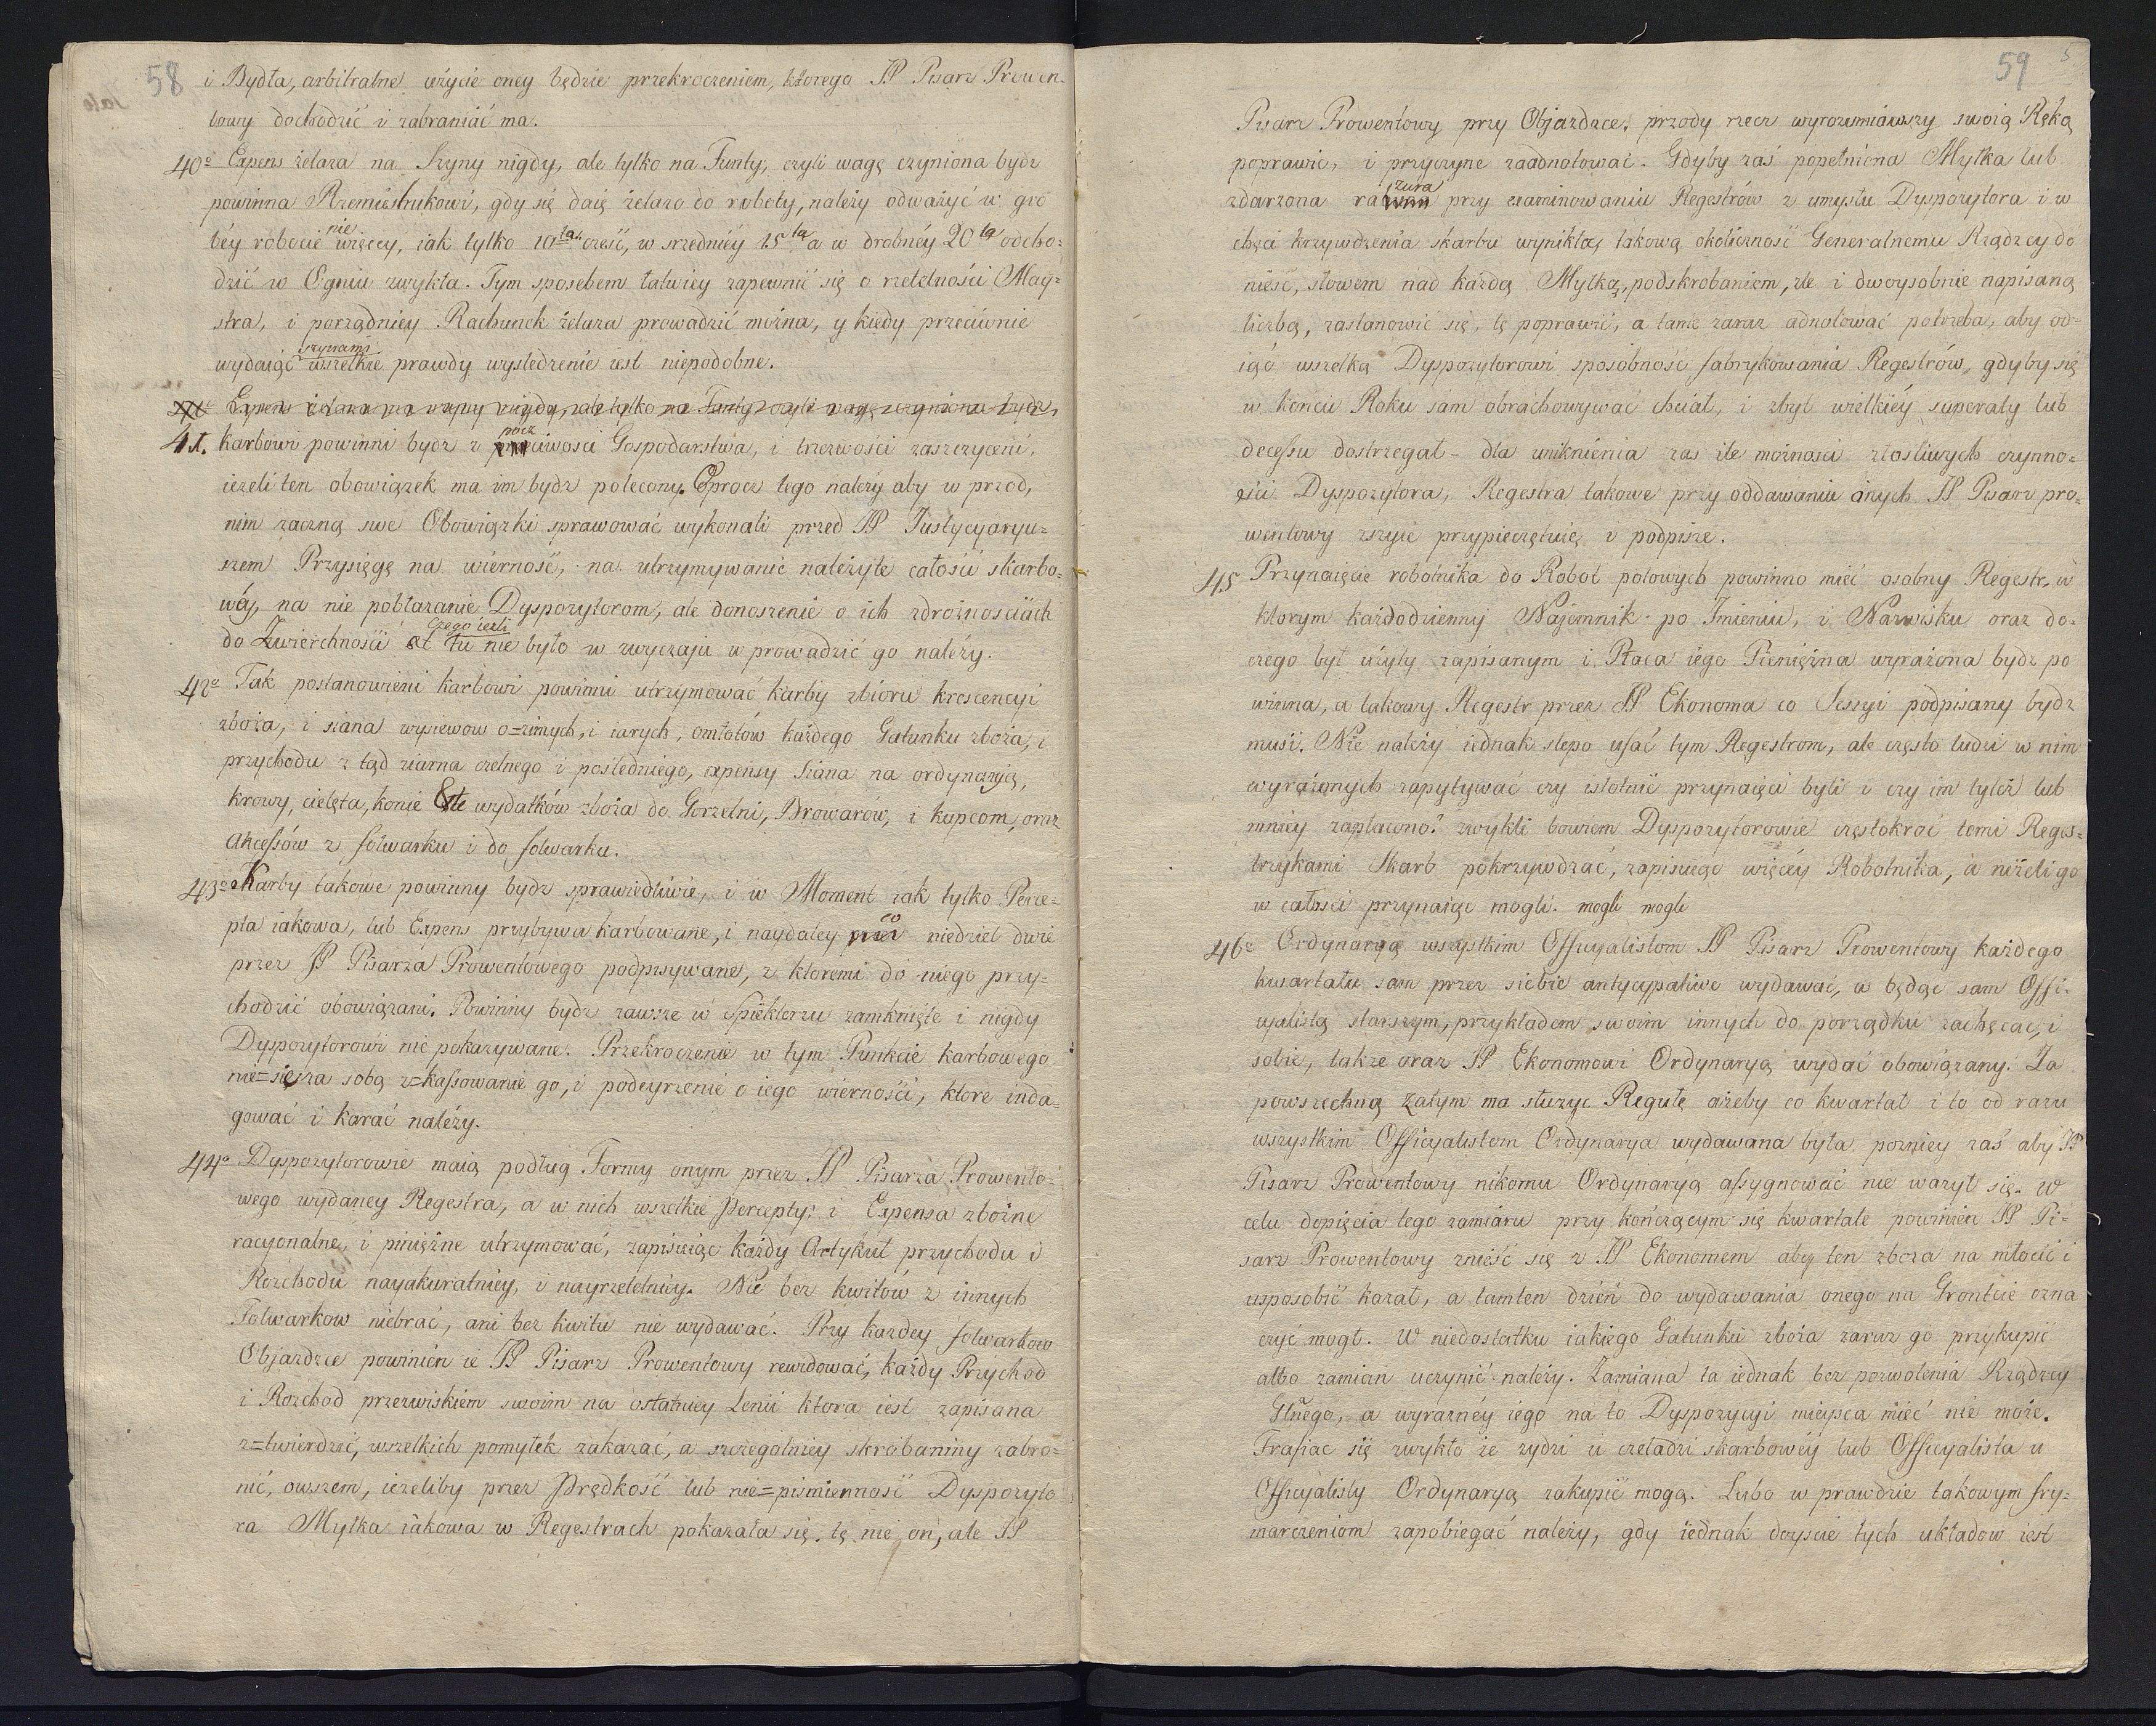 58
i Bydła, arbitralne użycie oney będzie przekroczeniem, ktorego JP Pisarz Prowen-
towy dochodzić i zabraniać ma.
40o Expens żelaza na Szyny nigdy, ale tylko na Funty, czyli wagę czyniona bydz
powinna Rzemieslnikowi, gdy się daię żelazo do roboty, należy odważyć w gru
béy robocie nie więcey, iak tylko 10ta część, w srzedniéy 15ta a w drobnéy 20ta odcho-
dzić w Ogniu zwykła. Tym sposobem łatwiey zapewnić się o rzetelności May=
stra, i porządniey Rachunek żelaza prowadzić można, y kiedy przeciwnie
wydaiąć szynami wszelkie prawdy wysledzenie iest niepodobne.
Expens żelaza na szyny nigdy, ale tylko na Funty czyli wagę czyniona bydz,
41. Karbowi powinni bydz z poczciwosci Gospodarstwa, i trzezwości zaszczyceni,
ieżeli ten obowiązek ma im bydz polecony. Oprocz tego należy aby w przod,
nim zaczną swe Obowiązki sprawować wykonali przed JP Justycyaryu=
szem Przysięgę na wierność, na utrzymywanie należyte całości skarbo=
wéy, na nie pobłazanie Dyspozytorom, ale donoszenie o ich zdrożnościach
do Zwierchnosci czego ieżli tu nie było w zwyczaju w prowadzić go należy.
42o Tak postanowieni karbowi powinni utrzymować karby zbioru krescencyi
zboża, i siana wysiewow o=zimych, i iarych, omłotów każdego Gatunku zboża, i
przychodu z tąd ziarna czelnego i posledniego, expensy Siana na ordynaryą,
krowy, cielęta, konie Etc wydatków zboża do Gorzelni, Browarów, i kupcom, oraz
akcessów z folwarku i do folwarku.
43o Karby takowe powinny bydz sprawiedliwie, i w Moment iak tylko Perce=
pta iakowa, lub Expens przybywa karbowane, i naydaley co niedziel dwie
przez JP Pisarza Prowentowego podpisywane, z ktoremi do niego przy-
chodzić obowiązani. Powinny bydz zawsze w Spieklerzu zamknięte i nigdy
Dyspozytorowi nie pokazywane. Przekroczenie w tym Punkcie karbowego
nie=sie za sobą z=kassowanie go, i podeyrzenie o iego wierności, ktore inda=
gować i karać należy.
44o Dyspozytorowie maią podług Formy onym przez JP Pisarza Prowento=
wego wydaney Regestra, a w nich wszelkie Percepty i Expensa zbożne
racyonalne, i pieniężne utrzymować, zapisuiąc każdy Artykuł przychodu i
Rozchodu nayakuratniey, i nayrzetelniey. Nic bez kwitów z innych
Folwarkow niebrać, ani bez kwitu nie wydawać. Przy każdey folwarkow
Objazdzce powinien ie JP Pisarz Prowentowy rewidować, każdy Przychod
i Rozchod przezwiskiem swoim na ostatniey Linii ktora iest zapisana
z=twierdzić, wszelkich pomyłek zakazać, a szczegolniey skrobaniny zabro=
nić, owszem, ieżeliby przez Prędkość lub nie=pismienność Dyspozyto
ra Myłka iakowa w Regestrach pokazała się, tę nie on, ale JP
59
Pisarz Prowentowy przy Objazdzce, przody rzecz wyrozumiawszy swoią Ręką
poprawić, i przyczynę zaadnotować. Gdyby zaś popełniona Myłka lub
zdarzona razura przy examinowaniu Regestrów z umysłu Dyspozytora i w
chęci krzywdzenia skarbu wynikła, takową okoliczność Generalnemu Rządzcy do
nieść, słowem nad każdą Myłką, podskrobaniem, zle i dwoysobnie napisaną
liczbą, zastanowić się, tę poprawić, a tamę zaraz adnotować potrzeba, aby od-
iąć wszelką Dyspozytorowi sposobność fabrykowania Regestrów, gdyby się
w końcu Roku sam obrachowywać chciał, i zbyt wielkiéy superaty lub
decessu dostrzegał – dla uniknienia zas ile możnosci złosliwych czynno=
ści Dyspozytora, Regestra takowe przy oddawaniu onych JP Pisarz pro=
wentowy zszyie przypieczętuię i podpisze.
45 Przynaięcie robotnika do Robot polowych powinno mieć osobny Regestr, w
ktorym każdodzienny Najemnik po Imieniu, i Nazwisku oraz do-
czego był użyty zapisanym i Płaca iego Pieniężna wyrażona bydz po
winna, a takowy Regestr przez JP Ekonoma co Sessyi podpisany bydz
musi. Nie należy iednak slepo ufać tym Regestrom, ale często ludzi w nim
wyrażonych zapytywać czy istotnie przynaięci byli i czy im tyleż lub
mniey zapłacono? zwykli bowiem Dyspozytorowie częstokroć temi Reges=
trzykami Skarb pokrzywdzać, zapisuiąc więcéy Robotnika, a niżeli go
w całości przynaiąc mogli. mogli mogli
46o Ordynaryą wszystkim Officyalistom JP Pisarz Prowentowy każdego
kwartału sam przez siebie antycypative wydawać, a będąc sam Offi-
cyalistą starszym, przykładem swoim innych do porządku zachęcac, i
sobie, także oraz JP Ekonomowi Ordynaryą wydać obowiązany. Za
powszechną zatym ma służyc Regułę ażeby co kwartał i to od razu
wszystkim Officyalistom Ordynarya wydawana była, pozniey zaś aby JP
Pisarz Prowentowy nikomu Ordynaryą assygnować nie ważył się. W
celu dopięcia tego zamiaru przy kończącym się kwartale powinien JP Pi=
sarz Prowentowy znieść się z JP Ekonomem aby ten zboża na młocić i
usposobić kazał, a tamten dzień do wydawania onego na Gruntcie ozna
czyć mogł. W niedostatku iakiego Gatunku zboża zaraz go przykupić
albo zamian uczynić należy. Zamiana ta iednak bez pozwolenia Rządzcy
Głnego, a wyraznéy iego na to Dyspozycyi mieysca mieć nie może.
Trafiac się zwykło że zydzi u czeladzi skarbowéy lub Officyalista u
Officyalisty Ordynaryą zakupić mogą. Lubo w prawdzie takowym fry-
marczeniom zapobiegać należy, gdy iednak doyscie tych układow iest